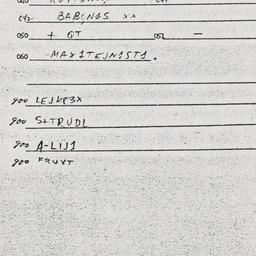 042 BABCNAS xx
050 + QT 052 —
060 -MAX1TEJN1ST1.
900 LEJKP3X
900 S+TRUDL
900 A-LIJ1
900 FRUYT